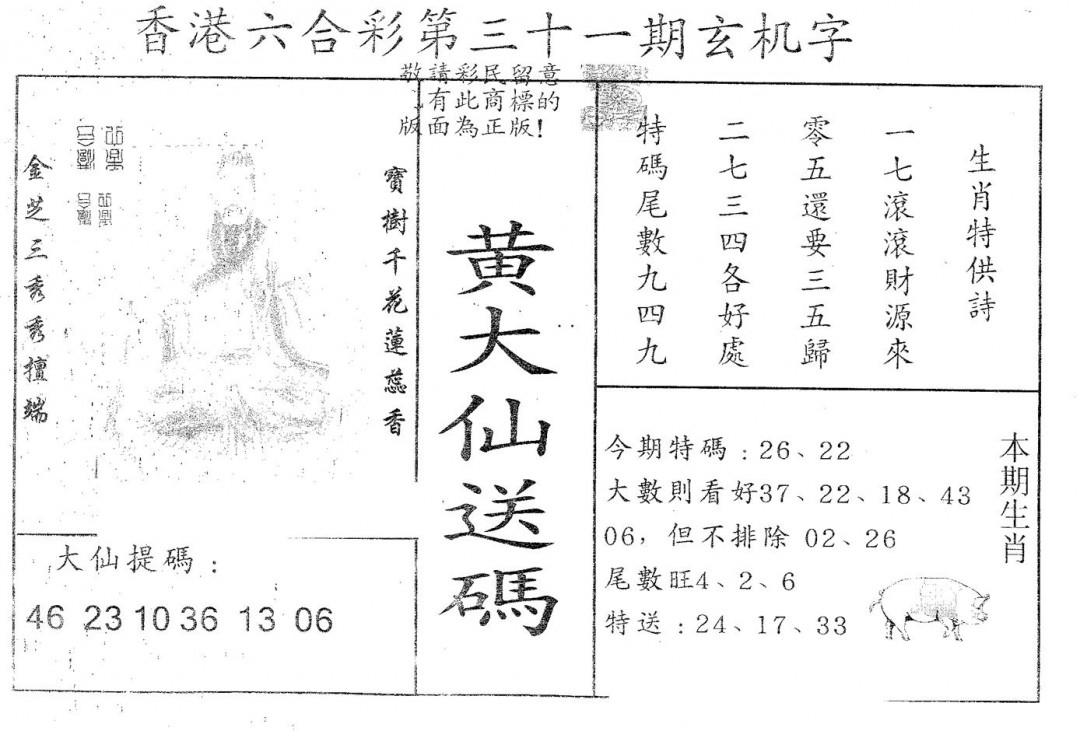 香港六合彩第三十一期玄机字
敬請彩民留意
有此商標的
版面為正版!
金芝三秀秀擅端
寶樹千花蓮蕊香
黄大仙送碼
生肖特供詩
一七滾滾財源來
零五還要三五歸
二七三四各好處
特碼尾數九四九
大仙提碼：
46 23 10 36 13 06
本期生肖
今期特碼：26、22
大數則看好37、22、18、43
06，但不排除 02、26
尾數旺4、2、6
特送：24、17、33